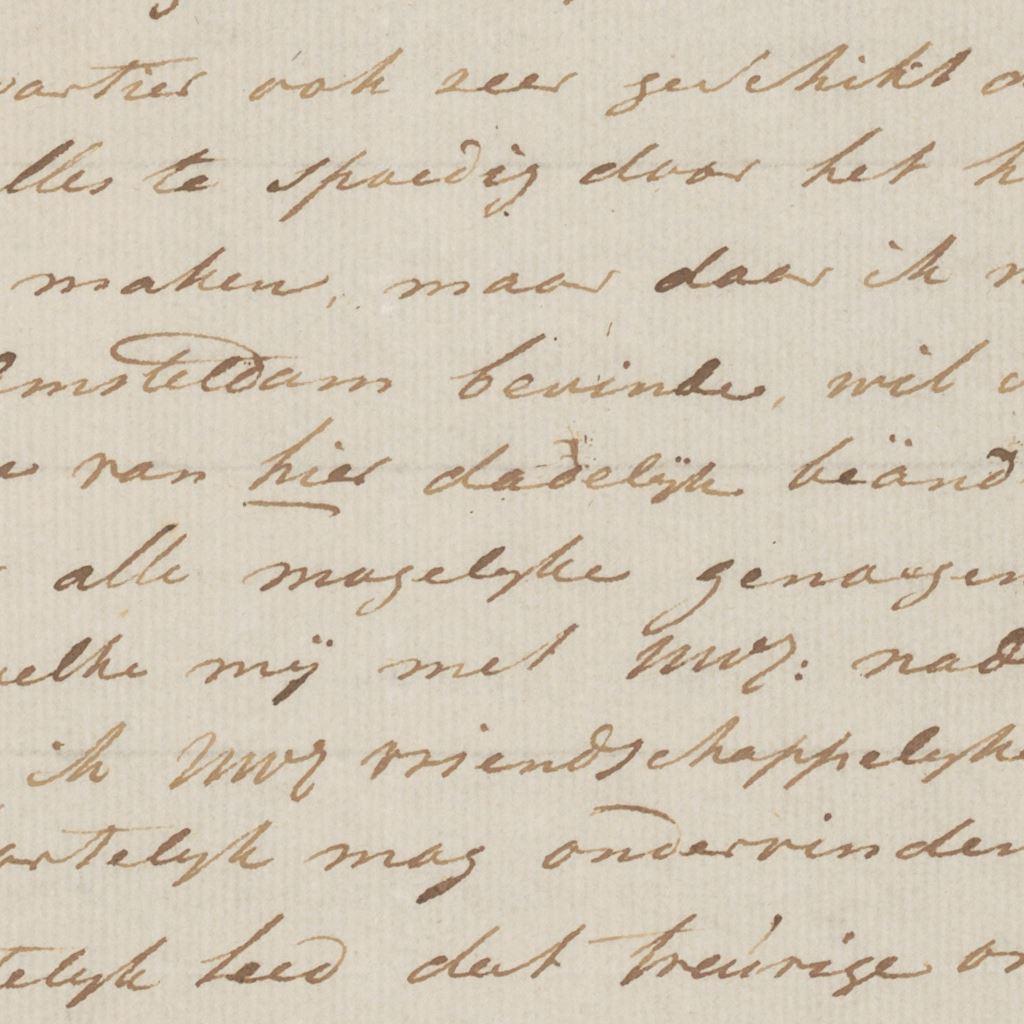 wartier ook zeer geschikt o
lles te spoedig door het h
maken, maar daar ik m
Amsteldam bevinde, wil
e van hier dadelÿk beänd
alle mogelyke genoegen
welke mÿ met UWZ: nad
ik UWZ vriendschappelyke
artelyk mag ondervinden
telyk leed dat treurige on